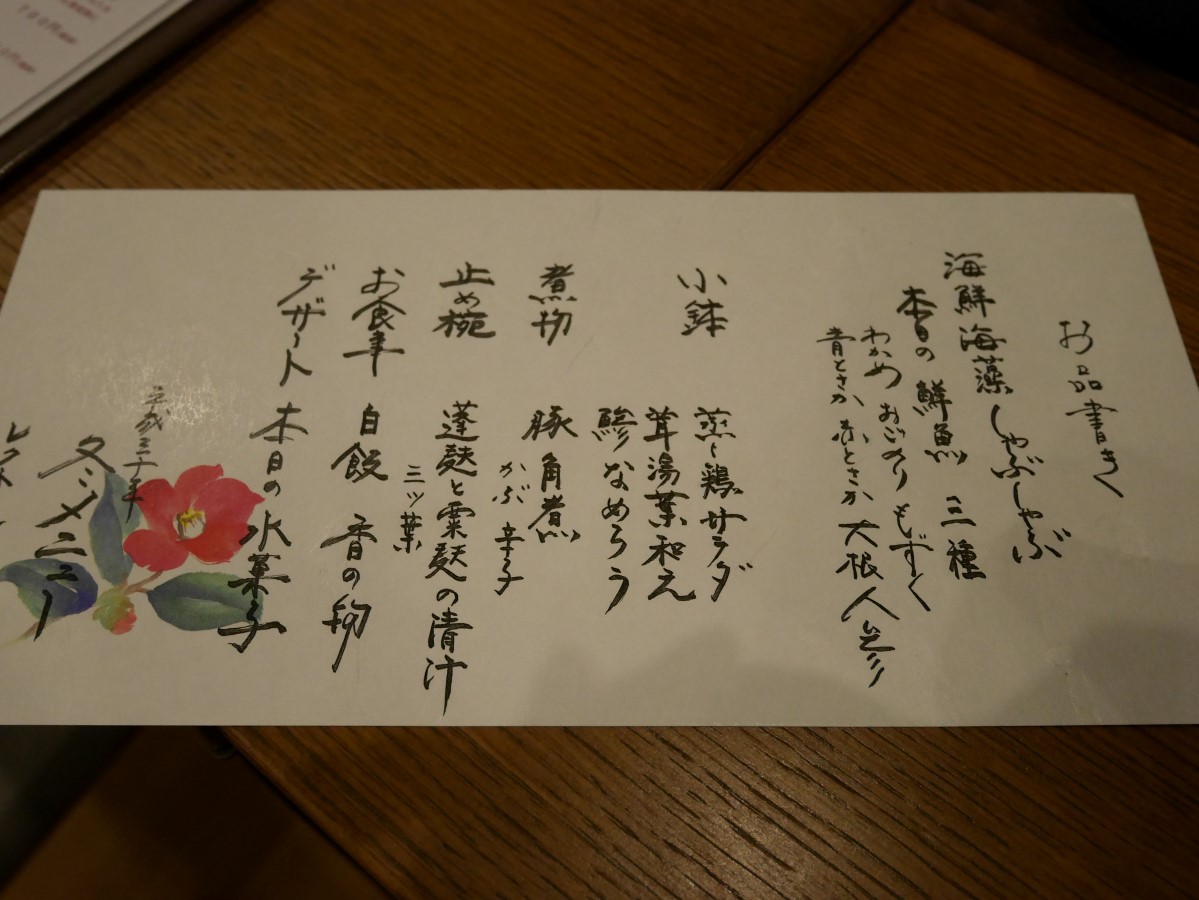 お品書き
海鮮海藻しゃぶしゃぶ
本日の 鮮魚 三種
わかめ おごのり もずく
青とさか 赤とさか 大根 人参
小鉢 蒸し鶏サラダ
茸湯葉和え
鯵なめろう
煮物 豚角煮
かぶ 辛子
止め椀 蓬麸と粟麸の清汁
三ッ葉
お食事 白飯 香の物
デザート 本日の水菓子
平成三十年
冬メニュー